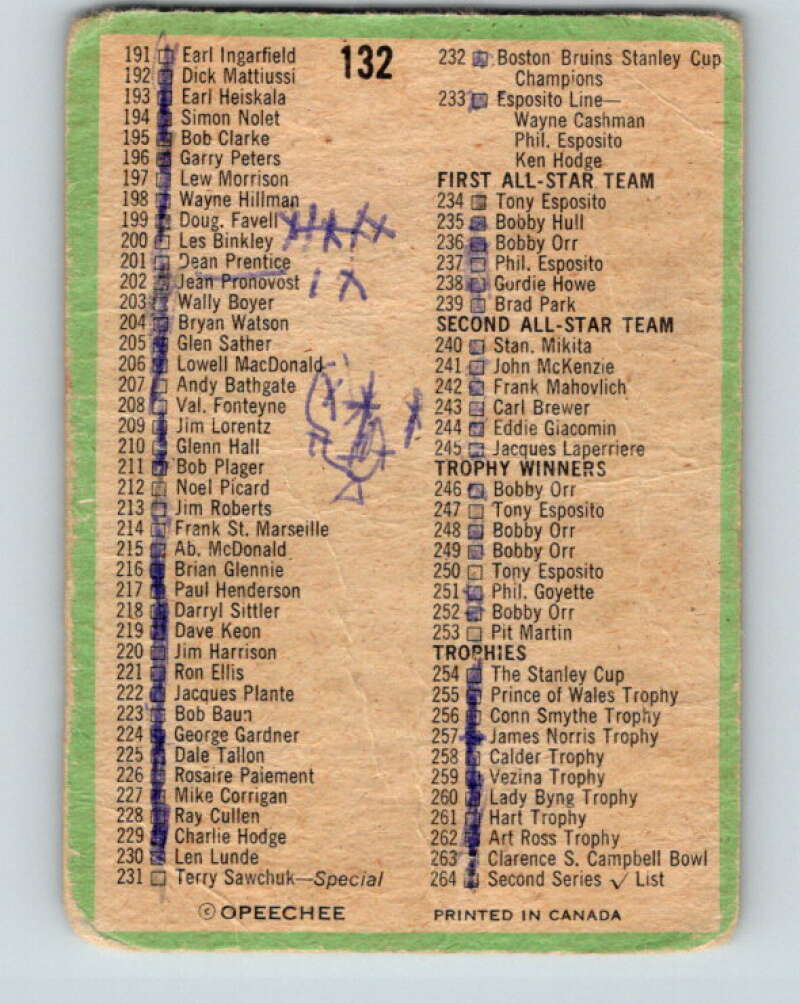 132
191 Earl Ingarfield
192 Dick Mattiussi
193 Earl Heiskala
194 Simon Nolet
195 Bob Clarke
196 Garry Peters
197 Lew Morrison
198 Wayne Hillman
199 Doug. Favell
200 Les Binkley
201 Dean Prentice
202 Jean Pronovost
203 Wally Boyer
204 Bryan Watson
205 Glen Sather
206 Lowell MacDonald
207 Andy Bathgate
208 Val. Fonteyne
209 Jim Lorentz
210 Glenn Hall
211 Bob Plager
212 Noel Picard
213 Jim Roberts
214 Frank St. Marseille
215 Ab. McDonald
216 Brian Glennie
217 Paul Henderson
218 Darryl Sittler
219 Dave Keon
220 Jim Harrison
221 Ron Ellis
222 Jacques Plante
223 Bob Baun
224 George Gardner
225 Dale Tallon
226 Rosaire Paiement
227 Mike Corrigan
228 Ray Cullen
229 Charlie Hodge
230 Len Lunde
231 Terry Sawchuk—Special
© OPEECHEE
232 Boston Bruins Stanley Cup
Champions
233 Esposito Line—
Wayne Cashman
Phil. Esposito
Ken Hodge
FIRST ALL-STAR TEAM
234 Tony Esposito
235 Bobby Hull
236 Bobby Orr
237 Phil. Esposito
238 Gordie Howe
239 Brad Park
SECOND ALL-STAR TEAM
240 Stan. Mikita
241 John McKenzie
242 Frank Mahovlich
243 Carl Brewer
244 Eddie Giacomin
245 Jacques Laperriere
TROPHY WINNERS
246 Bobby Orr
247 Tony Esposito
248 Bobby Orr
249 Bobby Orr
250 Tony Esposito
251 Phil. Goyette
252 Bobby Orr
253 Pit Martin
TROPHIES
254 The Stanley Cup
255 Prince of Wales Trophy
256 Conn Smythe Trophy
257 James Norris Trophy
258 Calder Trophy
259 Vezina Trophy
260 Lady Byng Trophy
261 Hart Trophy
262 Art Ross Trophy
263 Clarence S. Campbell Bowl
264 Second Series ✓ List
PRINTED IN CANADA